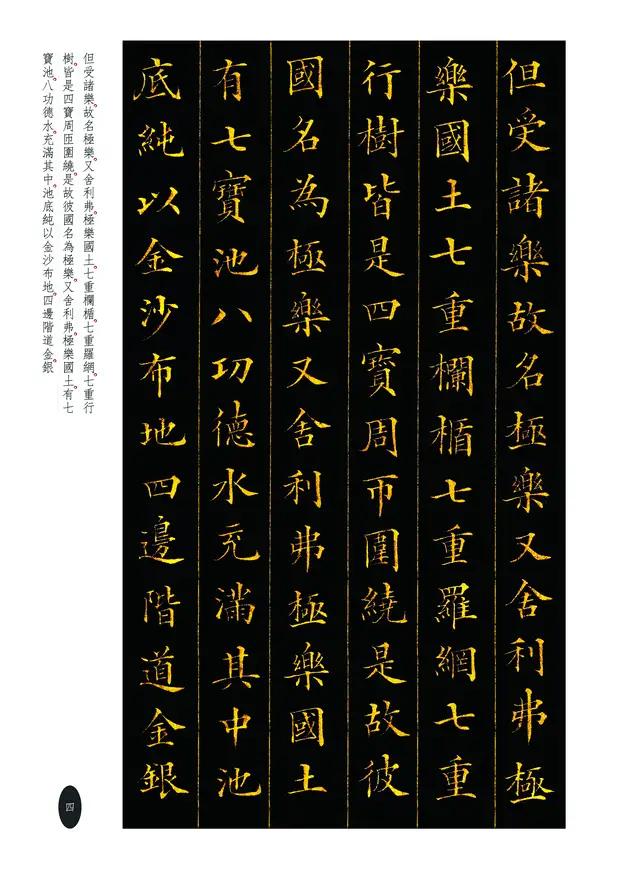 但受諸樂故名極樂又舍利弗極
樂國土七重欄楯七重羅網七重
行樹皆是四寶周帀圍繞是故彼
國名為極樂又舍利弗極樂國土
有七寶池八功德水充滿其中池
底純以金沙布地四邊階道金銀
但受諸樂。故名極樂。又舍利弗。極樂國土。七重欄楯。七重羅網。七重行
樹。皆是四寶周匝圍繞。是故彼國名為極樂。又舍利弗。極樂國土。有七
寶池。八功德水。充滿其中。池底純以金沙布地。四邊階道。金銀
四